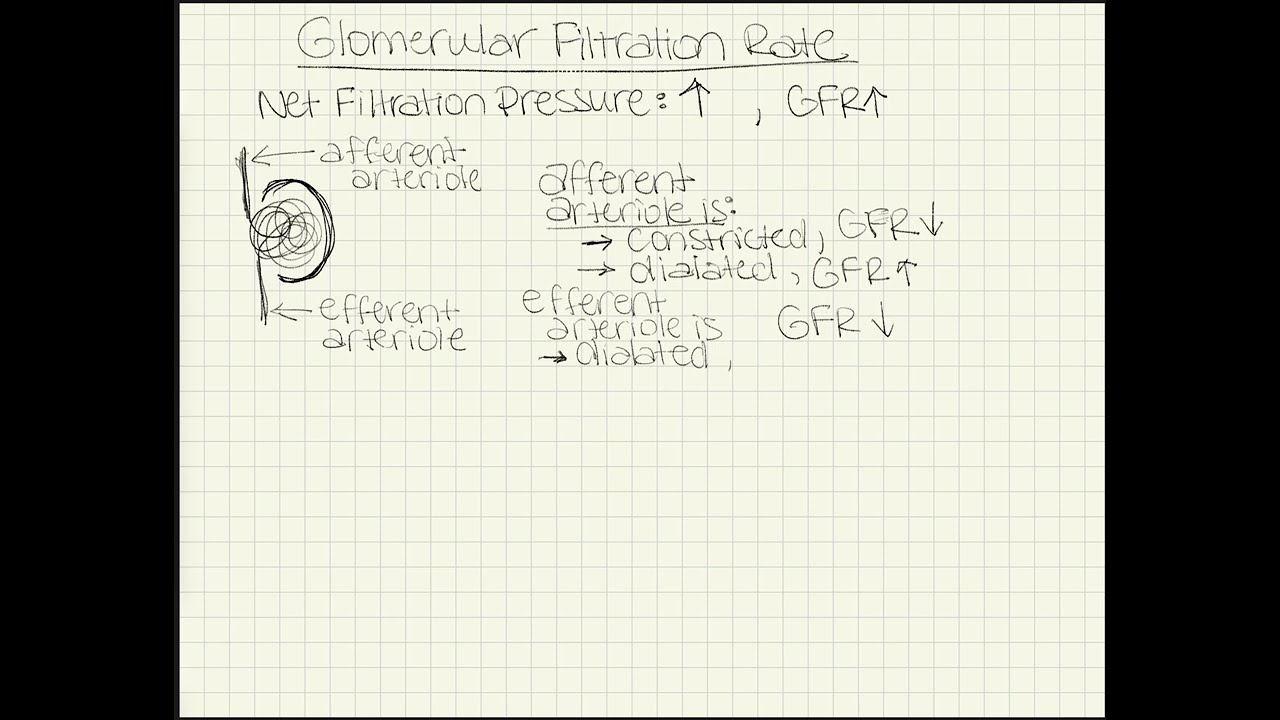 Glomerular Filtration Rate
Net Filtration Pressure: ↑ , GFR↑
← afferent
arteriole
afferent
arteriole is:
→ constricted, GFR↓
→ dialated, GFR↑
← efferent
arteriole
efferent
arteriole is
→ dialated,
GFR↓